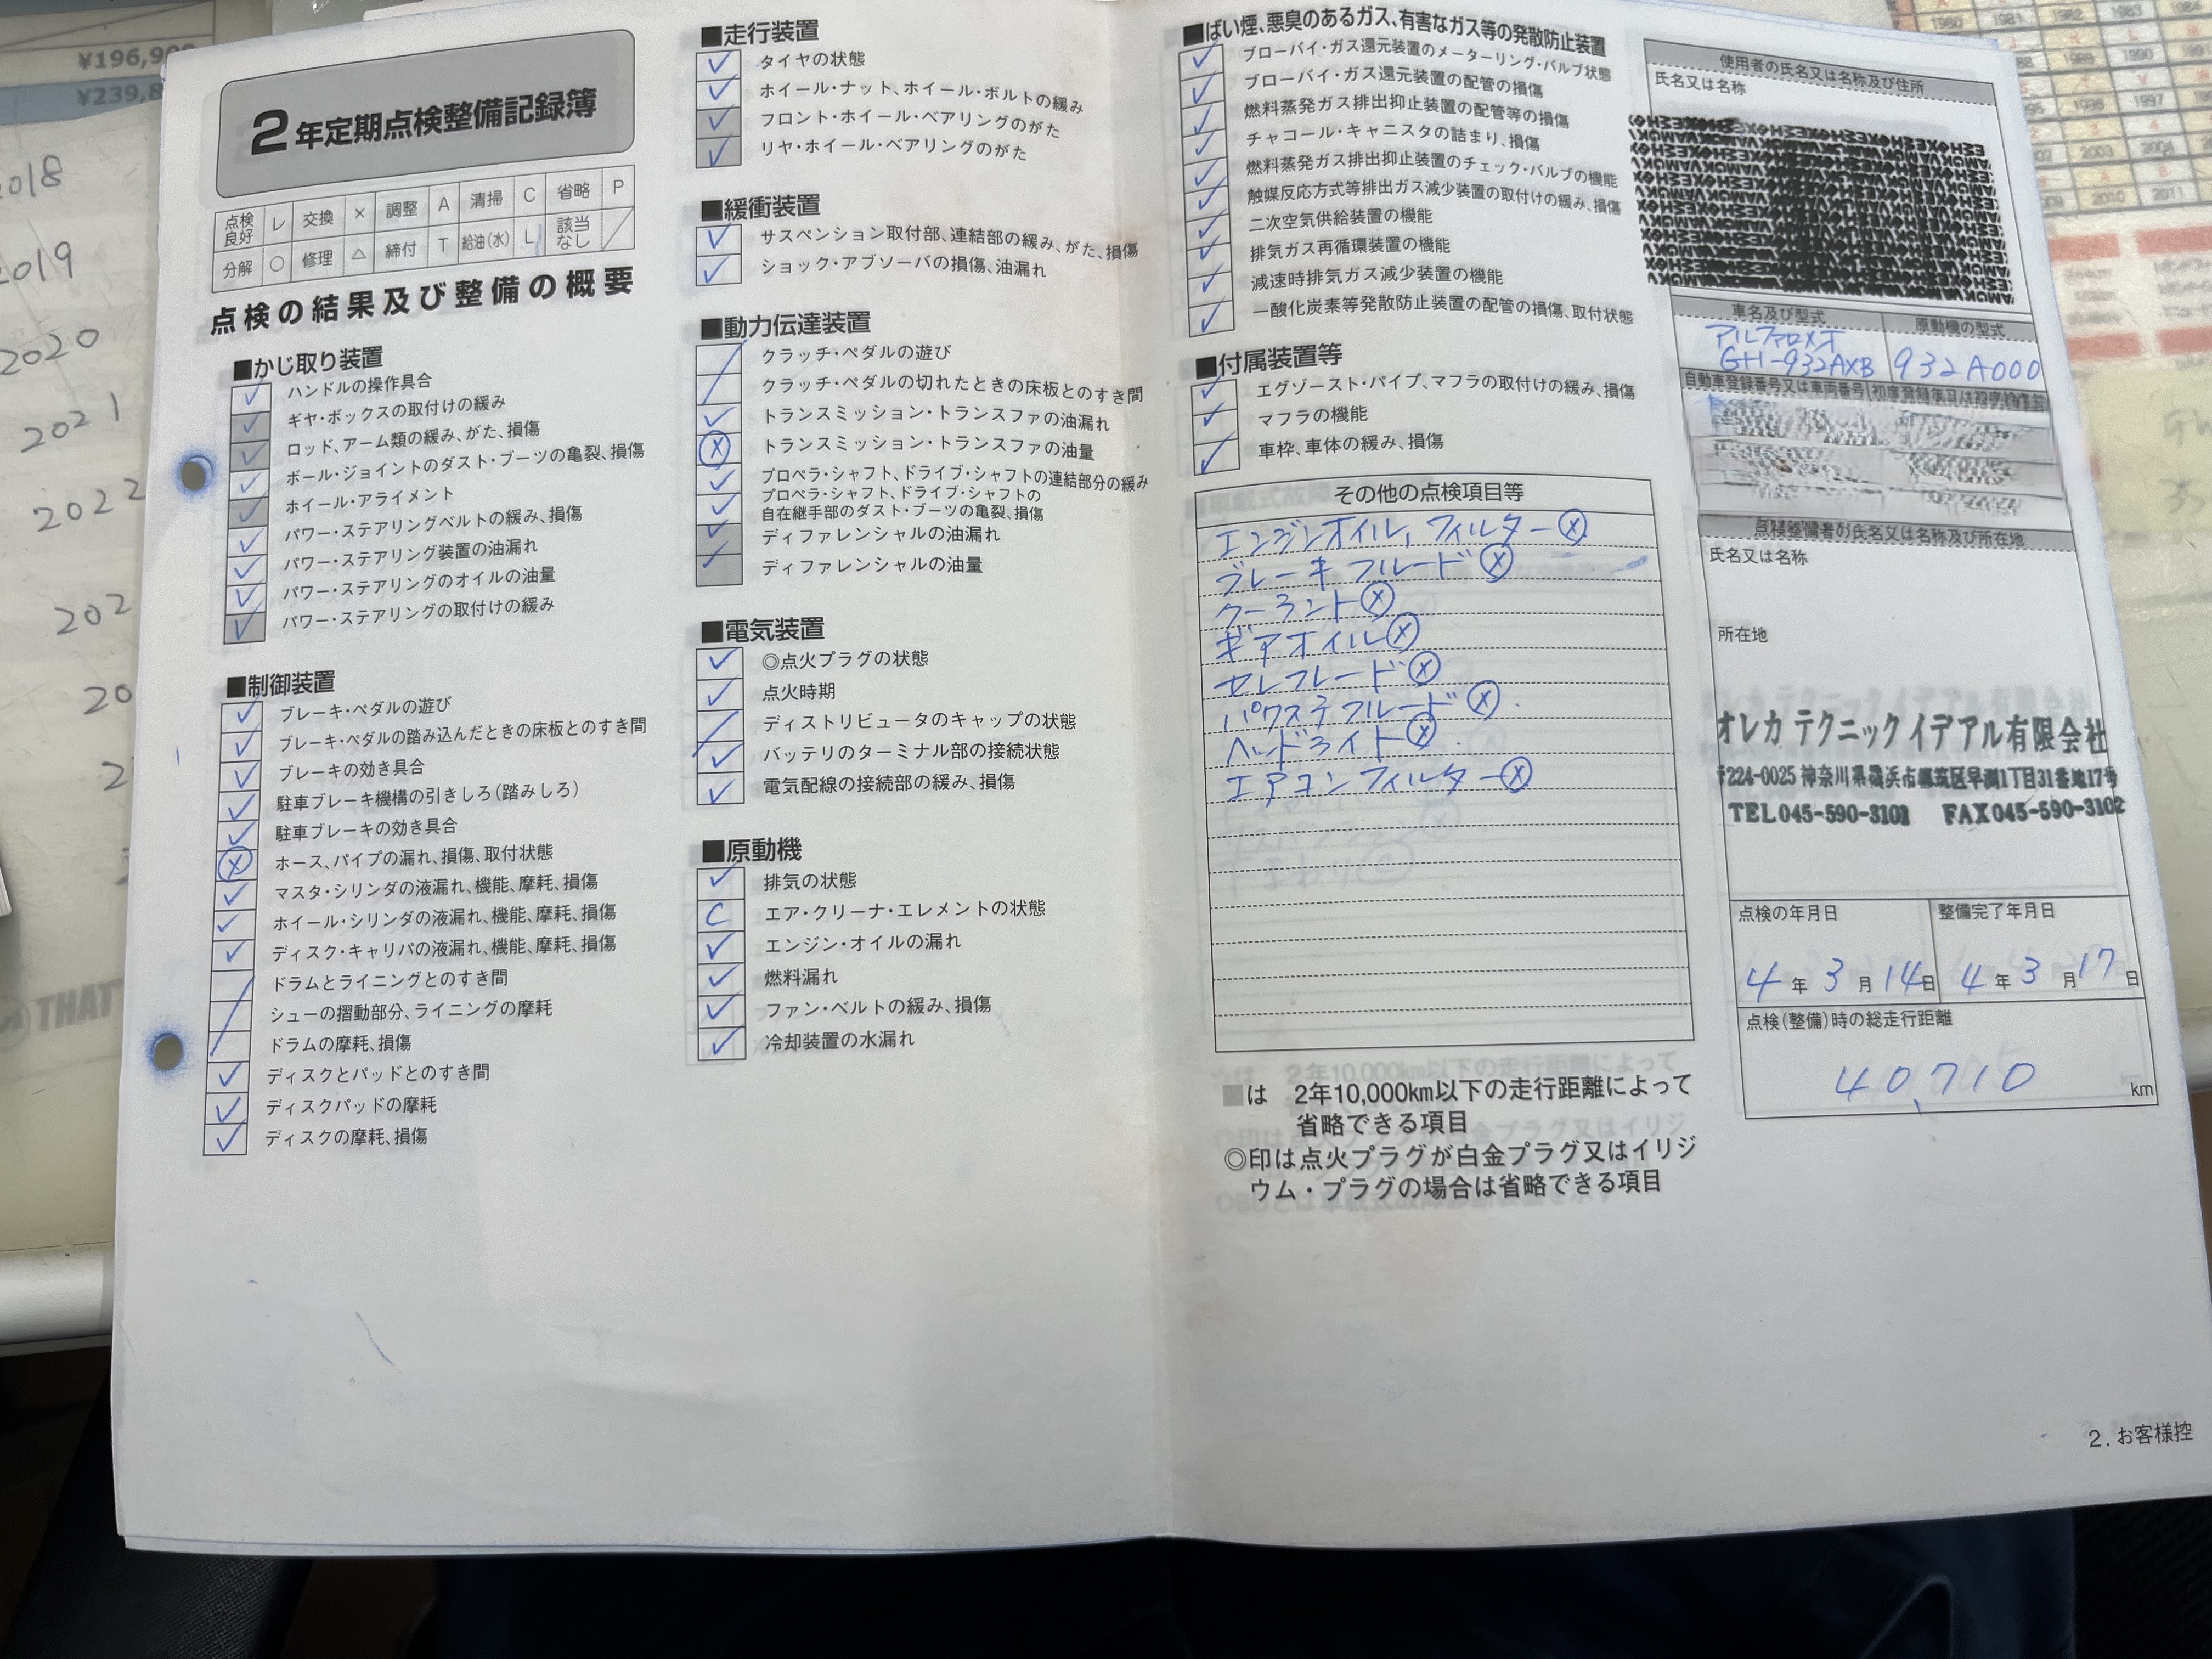 ¥196,90
¥239,8
2018
2019
2020
2021
2022
202
20
2
THAT
2年定期点検整備記録簿
点検良好 レ 交換 × 調整 A 清掃 C 省略 P
分解 ○ 修理 △ 締付 T 給油(水) L 該当なし ╱
点検の結果及び整備の概要
■かじ取り装置
✓ ハンドルの操作具合
✓ ギヤ・ボックスの取付けの緩み
✓ ロッド、アーム類の緩み、がた、損傷
✓ ボール・ジョイントのダスト・ブーツの亀裂、損傷
✓ ホイール・アライメント
✓ パワー・ステアリングベルトの緩み、損傷
✓ パワー・ステアリング装置の油漏れ
✓ パワー・ステアリングのオイルの油量
✓ パワー・ステアリングの取付けの緩み
■制御装置
✓ ブレーキ・ペダルの遊び
✓ ブレーキ・ペダルの踏み込んだときの床板とのすき間
✓ ブレーキの効き具合
✓ 駐車ブレーキ機構の引きしろ(踏みしろ)
✓ 駐車ブレーキの効き具合
ⓧ ホース、パイプの漏れ、損傷、取付状態
✓ マスタ・シリンダの液漏れ、機能、摩耗、損傷
✓ ホイール・シリンダの液漏れ、機能、摩耗、損傷
✓ ディスク・キャリパの液漏れ、機能、摩耗、損傷
╱ ドラムとライニングとのすき間
╱ シューの摺動部分、ライニングの摩耗
╱ ドラムの摩耗、損傷
✓ ディスクとパッドとのすき間
✓ ディスクパッドの摩耗
✓ ディスクの摩耗、損傷
■走行装置
✓ タイヤの状態
✓ ホイール・ナット、ホイール・ボルトの緩み
✓ フロント・ホイール・ベアリングのがた
✓ リヤ・ホイール・ベアリングのがた
■緩衝装置
✓ サスペンション取付部、連結部の緩み、がた、損傷
✓ ショック・アブソーバの損傷、油漏れ
■動力伝達装置
╱ クラッチ・ペダルの遊び
╱ クラッチ・ペダルの切れたときの床板とのすき間
✓ トランスミッション・トランスファの油漏れ
ⓧ トランスミッション・トランスファの油量
✓ プロペラ・シャフト、ドライブ・シャフトの連結部分の緩み
✓ プロペラ・シャフト、ドライブ・シャフトの
自在継手部のダスト・ブーツの亀裂、損傷
✓ ディファレンシャルの油漏れ
✓ ディファレンシャルの油量
■電気装置
✓ ◎点火プラグの状態
✓ 点火時期
╱ ディストリビュータのキャップの状態
✓ バッテリのターミナル部の接続状態
✓ 電気配線の接続部の緩み、損傷
■原動機
✓ 排気の状態
C エア・クリーナ・エレメントの状態
✓ エンジン・オイルの漏れ
✓ 燃料漏れ
✓ ファン・ベルトの緩み、損傷
✓ 冷却装置の水漏れ
■ばい煙、悪臭のあるガス、有害なガス等の発散防止装置
✓ ブローバイ・ガス還元装置のメーターリング・バルブ状態
✓ ブローバイ・ガス還元装置の配管の損傷
✓ 燃料蒸発ガス排出抑止装置の配管等の損傷
✓ チャコール・キャニスタの詰まり、損傷
✓ 燃料蒸発ガス排出抑止装置のチェック・バルブの機能
✓ 触媒反応方式等排出ガス減少装置の取付けの緩み、損傷
✓ 二次空気供給装置の機能
✓ 排気ガス再循環装置の機能
✓ 減速時排気ガス減少装置の機能
✓ 一酸化炭素等発散防止装置の配管の損傷、取付状態
■付属装置等
✓ エグゾースト・パイプ、マフラの取付けの緩み、損傷
✓ マフラの機能
✓ 車枠、車体の緩み、損傷
その他の点検項目等
エンジンオイル、フィルターⓧ
ブレーキフルードⓧ
クーラントⓧ
ギアオイルⓧ
セレフルードⓧ
パワステフルードⓧ
ヘッドライトⓧ
エアコンフィルターⓧ
■は 2年10,000km以下の走行距離によって
省略できる項目
◎印は点火プラグが白金プラグ又はイリジ
ウム・プラグの場合は省略できる項目
使用者の氏名又は名称及び住所
氏名又は名称
車名及び型式 原動機の型式
アルファロメオ
GH-932AXB 932A000
自動車登録番号又は車両番号
点検整備者の氏名又は名称及び所在地
氏名又は名称
所在地
オレカ テクニック イデアル有限会社
〒224-0025 神奈川県横浜市都筑区早渕1丁目31番地17号
TEL045-590-3101 FAX045-590-3102
点検の年月日 整備完了年月日
4年3月14日 4年3月17日
点検(整備)時の総走行距離
40,710 km
2.お客様控